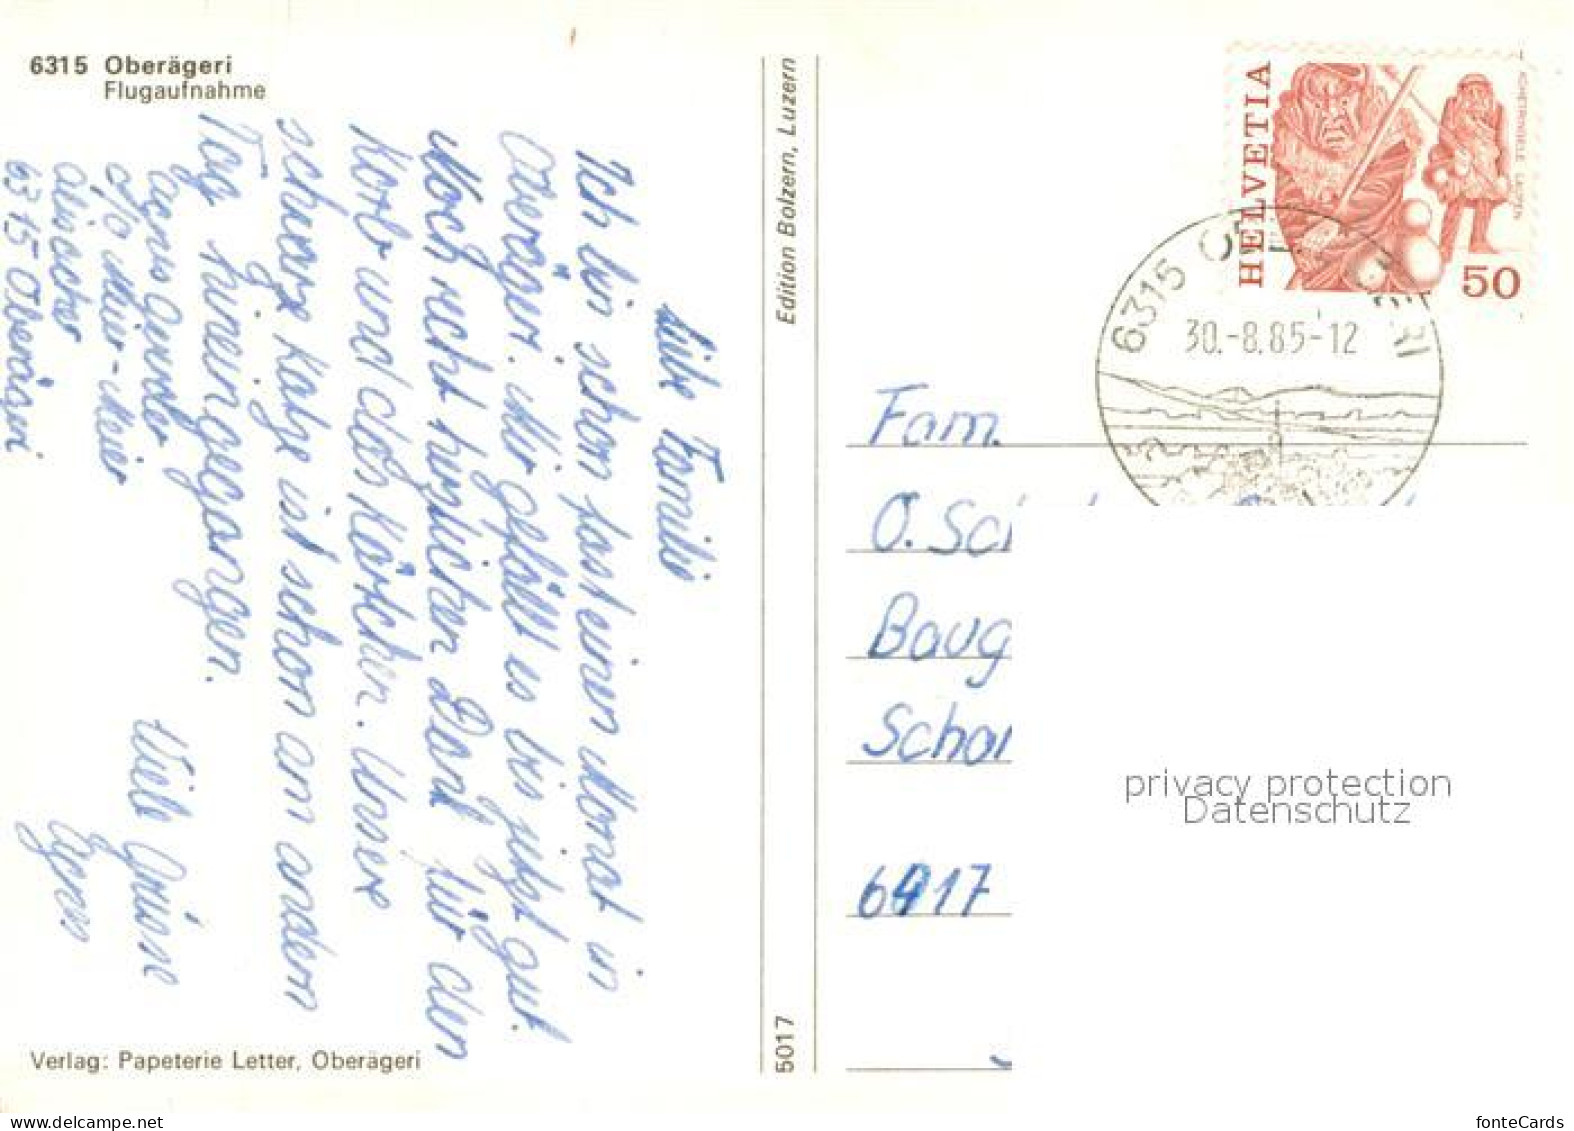 6315 Oberägeri
Flugaufnahme
Liebe Familie
Ich bin schon fast einen Monat in
Oberägeri. Mir gefällt es bis jetzt gut.
Noch recht herzlichen Dank für den
Korb und das Körbchen. Unsere
schwarze Katze ist schon am andern
Tag hineingegangen.
Viele Grüsse
Agnes
Agnes
c/o Meier-Meier
6315 Oberägeri
Verlag: Papeterie Letter, Oberägeri
Edition Bolzern, Luzern
5017
HELVETIA
50
6315
30.-8.85-12
Fam.
O. Sch
Baug
6417
privacy protection
Datenschutz
www.delcampe.net
fonteCards